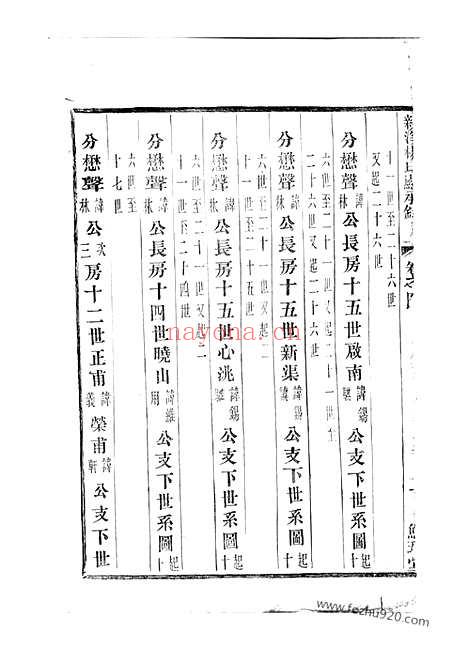 十一世至二十六世
又起二十六世
分懋聲諱林公長房十五世啟南諱錫公支下世系圖起十
六世至二十一世又起二十一世至
二十六世又起二十六世
分懋聲諱林公長房十五世新渠諱公支下世系圖起十
六世至二十一世又起二
十一世至二十六世
分懋聲諱林公長房十五世心洮諱錫公支下世系圖起十
六世至二十一世又起二
十一世至二十四世
分懋聲諱林公長房十四世曉山諱維用公支下世系圖起十
六世至
十七世
分懋聲諱林公次三房十二世正甫諱義榮甫諱軒公支下世
nayona.cn
www.fozhu920.com